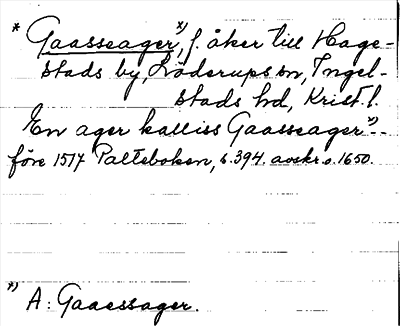 * Gaasseager*), f. åker till Hage-
stads by, Löderups sn, Ingel-
stads hd, Krist. l.
En ager kalliss Gaasseager*) --
före 1517 Palteboken, s. 394. avskr. o. 1650.
*) A: Gaaessager.